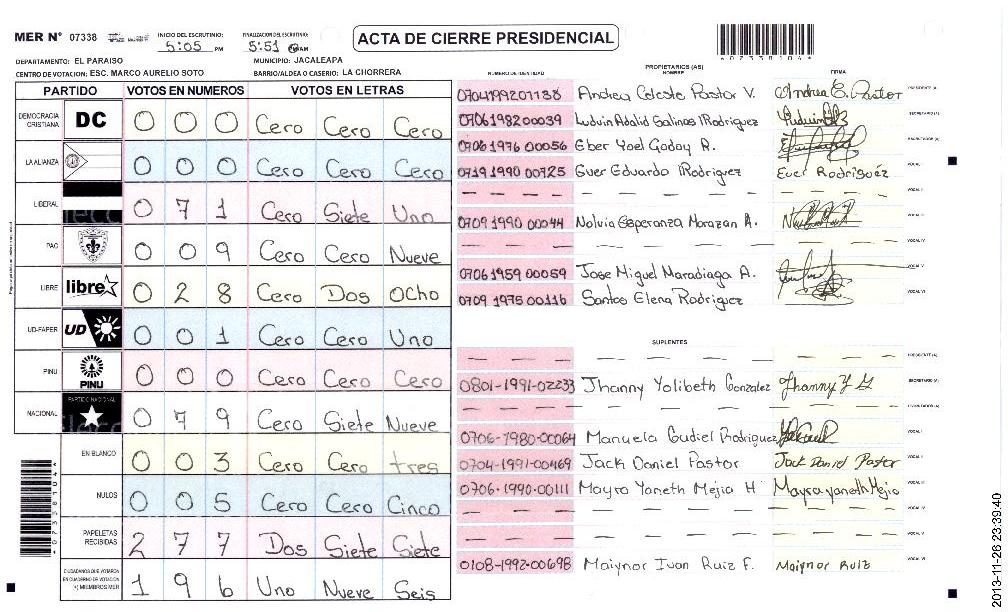 MER N° 07338
INICIO DEL ESCRUTINIO: 5:05 PM
FINALIZACION DEL ESCRUTINIO: 5:51 AM
ACTA DE CIERRE PRESIDENCIAL
DEPARTAMENTO: EL PARAISO
MUNICIPIO: JACALEAPA
CENTRO DE VOTACION: ESC. MARCO AURELIO SOTO
BARRIO/ALDEA O CASERIO: LA CHORRERA
PARTIDO VOTOS EN NUMEROS VOTOS EN LETRAS
DEMOCRACIA CRISTIANA DC 0 0 0 Cero Cero Cero
LA ALIANZA 0 0 0 Cero Cero Cero
LIBERAL 0 7 1 Cero Siete Uno
PAC 0 0 9 Cero Cero Nueve
LIBRE libre 0 2 8 Cero Dos Ocho
UD-FAPER UD 0 0 1 Cero Cero Uno
PINU PINU 0 0 0 Cero Cero Cero
NACIONAL PARTIDO NACIONAL 0 7 9 Cero Siete Nueve
EN BLANCO 0 0 3 Cero Cero tres
NULOS 0 0 5 Cero Cero Cinco
PAPELETAS RECIBIDAS 2 7 7 Dos Siete Siete
CIUDADANOS QUE VOTARON EN CUADERNO DE VOTACION (+) MIEMBROS MER 1 9 6 Uno Nueve Seis
PROPIETARIOS (AS)
NUMERO DE IDENTIDAD NOMBRE FIRMA
0704199201138 Andrea Celeste Pastor V. Andrea C. Pastor PRESIDENTE (A)
0706198200039 Luduin Adalid Salinas Rodriguez SECRETARIO (A)
0706 1976 00056 Eber Yoel Godoy R. ESCRUTADOR (A)
0719 1990 00725 Ever Eduardo Rodriguez Ever Rodriguéz VOCAL I
— — — — VOCAL II
0709 1990 00044 Nolvia Esperanza Morazan A. VOCAL III
— — — — VOCAL IV
0706 1959 00059 Jose Miguel Maradiaga A. VOCAL V
0709 1975 00116 Santos Elena Rodriguez VOCAL VI
SUPLENTES
— — — — PRESIDENTE (A)
0801-1991-02233 Jhanny Yolibeth Gonzalez Jhanny Y G SECRETARIO (A)
— — — — ESCRUTADOR (A)
0706-1980-00064 Manuela Gudiel Rodriguez VOCAL I
0704-1991-00469 Jack Daniel Pastor Jack Daniel Pastor VOCAL II
0706-1990-00111 Mayra Yaneth Mejia H Mayra yaneth Mejia VOCAL III
— — — — VOCAL IV
— — — — VOCAL V
0108-1992-00698 Maiynor Ivan Ruiz F. Maiynor Ruiz VOCAL VI
2013-11-26 23:39:40